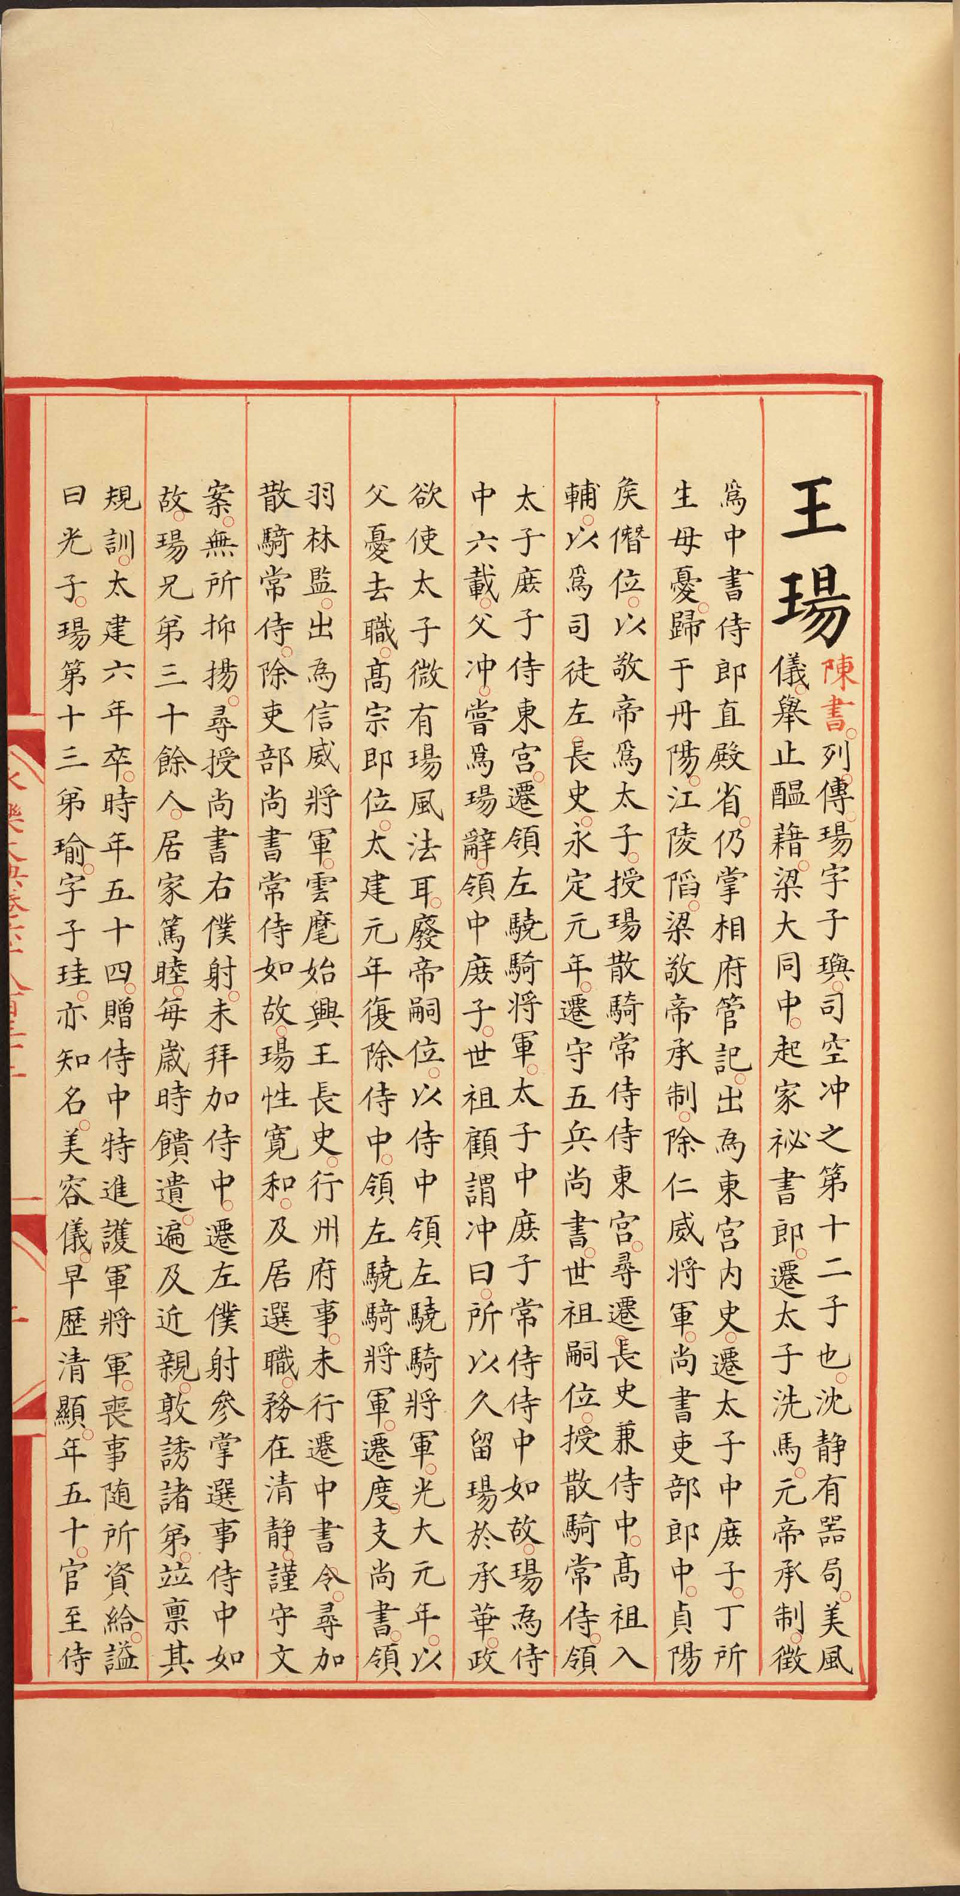 王瑒
陳書列傳瑒字子璵司空冲之第十二子也沈静有噐局美風
儀舉止醞藉梁大同中起家祕書郎遷太子洗馬元帝承制徵
爲中書侍郎直殿省仍掌相府管記出為東宮内史遷太子中庶子丁所
生母憂歸于丹陽江陵陷梁敬帝承制除仁威將軍尚書吏部郎中貞陽
矦僭位以敬帝爲太子授瑒散騎常侍侍東宮尋遷長史兼侍中髙祖入
輔以爲司徒左長史永定元年遷守五兵尚書世祖嗣位授散騎常侍領
太子庶子侍東宮遷領左驍騎將軍太子中庶子常侍侍中如故瑒為侍
中六載父冲嘗爲瑒辭領中庶子世祖顧謂冲曰所以久留瑒於承華政
欲使太子微有瑒風法耳廢帝嗣位以侍中領左驍騎將軍光大元年以
父憂去職髙宗即位太建元年復除侍中領左驍騎將軍遷度支尚書領
羽林監出為信威將軍雲麾始興王長史行州府事未行遷中書令尋加
散騎常侍除吏部尚書常侍如故瑒性寛和及居選職務在清静謹守文
案無所抑揚尋授尚書右僕射未拜加侍中遷左僕射參掌選事侍中如
故瑒兄弟三十餘人居家篤睦每歲時饋遺遍及近親敦誘諸弟竝禀其
規訓太建六年卒時年五十四贈侍中特進護軍將軍喪事随所資給謚
曰光子瑒第十三弟瑜字子珪亦知名美容儀早歴清顯年五十官至侍